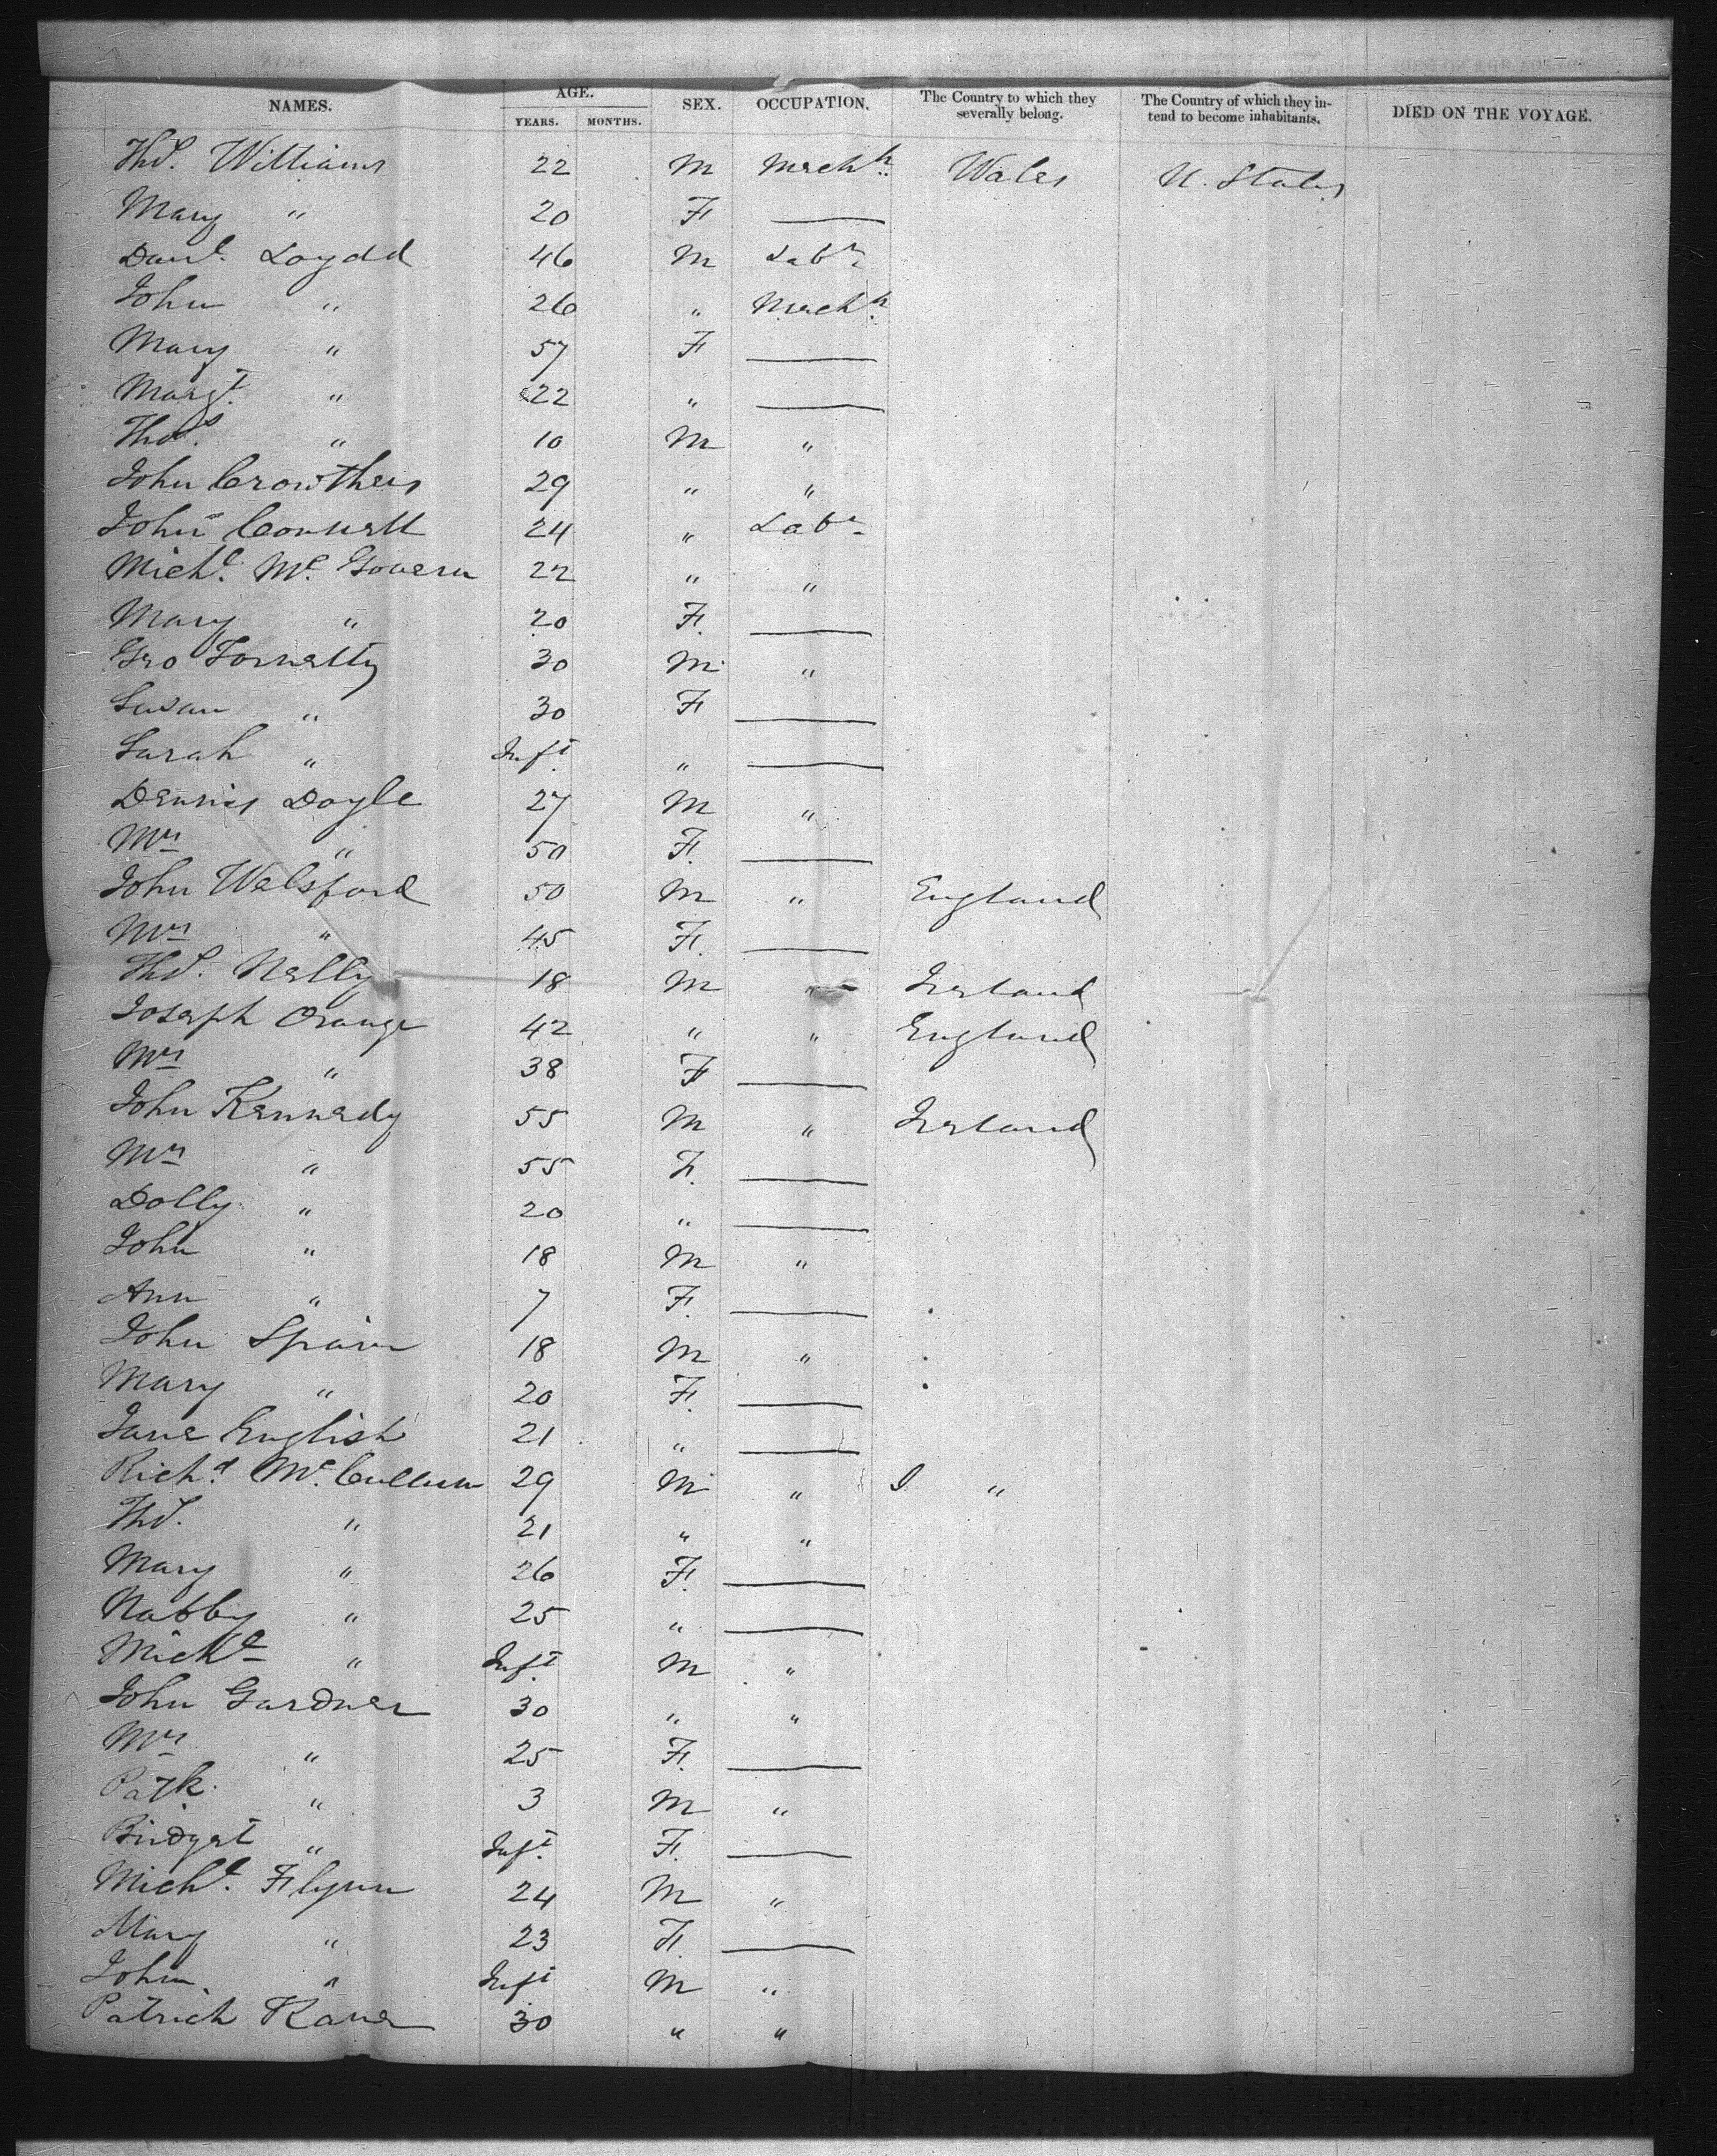 NAMES. AGE. YEARS. MONTHS. SEX. OCCUPATION. The Country to which they severally belong. The Country of which they intend to become inhabitants. DIED ON THE VOYAGE.
Thos. Williams 22 M Mech Wales U. States
Mary " 20 F —
Danl. Loydd 46 M Labr
John " 26 " Mech
Mary " 57 F —
Margt. " 22 " —
Thos. " 10 M "
John Crowthers 29 " "
John Connell 24 " Labr
Michl. Mc. Govern 22 " "
Mary " 20 F. —
Geo 30 M "
Susan " 30 F —
Sarah " Inft. " —
Dennis Doyle 27 M "
Mrs " 50 F. —
John Welsford 50 M " England
Mrs " 45 F. —
Thos. Nelly 18 M " Ireland
Joseph Orange 42 " " England
Mrs " 38 F —
John Kennedy 55 M " Ireland
Mrs " 55 F. —
Dolly " 20 " —
John " 18 M "
Ann " 7 F. —
John Spain 18 M "
Mary " 20 F. —
Jane English 21 " —
Richd. Mc. Cullum 29 M " I "
Thos. " 21 " "
Mary " 26 F. —
Nabby " 25 " —
Michl " Inft. M "
John Gardner 30 " "
Mrs " 25 F. —
Patk. " 3 M "
Bridget " Inft. F. —
Michl. Flynn 24 M "
Mary " 23 F. —
John " Inft M "
Patrick Kane 30 " "